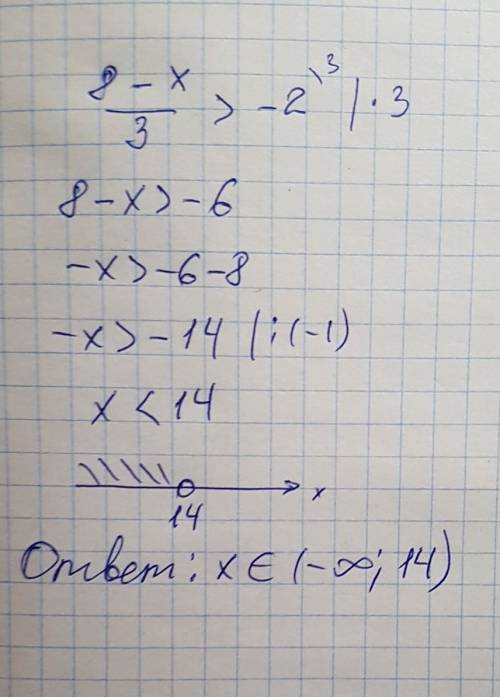 8 - x / 3 > -2 \3 | · 3
8 - x > -6
-x > -6 - 8
-x > -14 | : (-1)
x < 14
14 x
Ответ: x ∈ (-∞; 14)